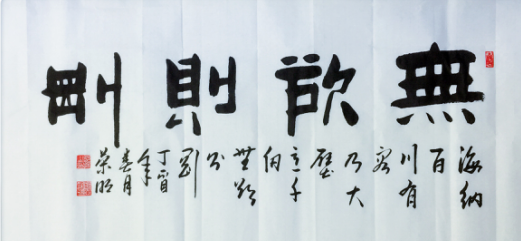 無欲則剛
海納
百
川有
容
乃大
壁
立千
仞
無欲
則
剛
丁酉
年
春月